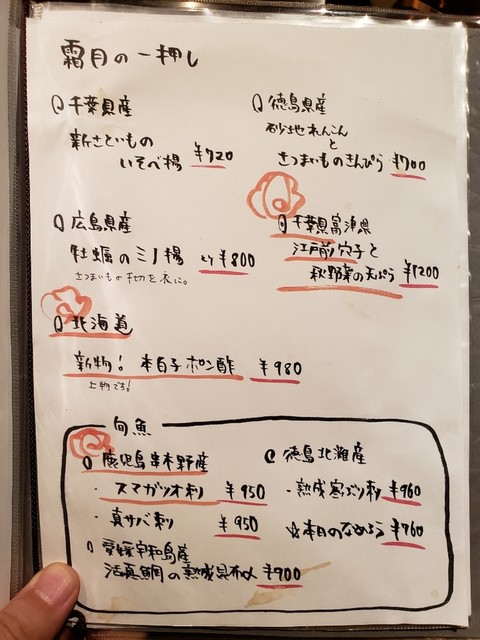 霜月の一押し
千葉県産
新さといもの
いそべ揚 ¥720
徳島県産
砂地れんこんと
さつまいものきんぴら ¥700
広島県産
牡蠣のミノ揚 2ケ¥800
さつまいも千切を衣に。
千葉県富津県
江戸前穴子と
秋野菜の天ぷら ¥1200
北海道
新物! 本白子ポン酢 ¥980
上物です!
旬魚
鹿児島串木野産
・スマガツオ刺 ¥950
・真サバ刺 ¥950
愛媛宇和島産
活真鯛の熟成昆布〆 ¥900
徳島北灘産
・熟成寒ぶり刺 ¥960
☆本日のなめろう ¥760